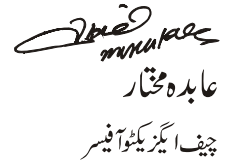 عابدہ مختار
چیف ایگزیکٹو آفیسر